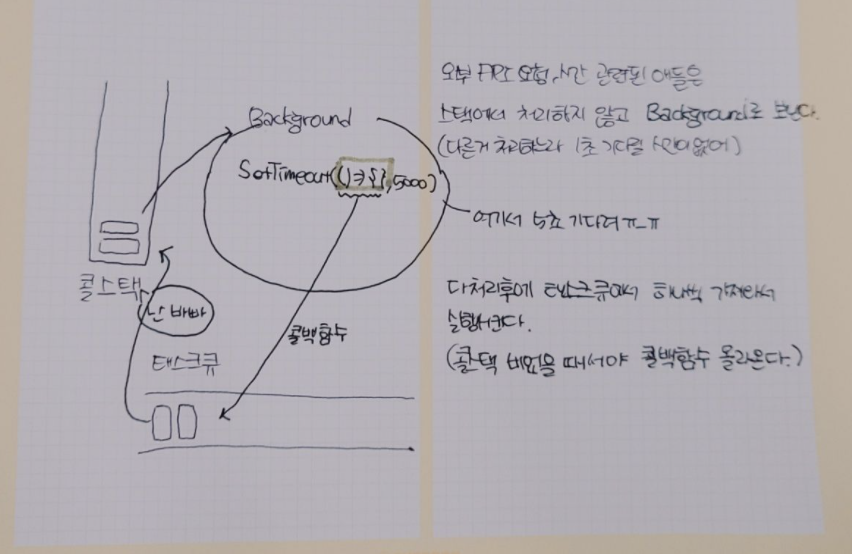 Background
SetTimeout(()=>{},5000)
콜스택
난 바빠
콜백함수
태스크큐
외부 API 요청, 시간 관련된 애들은
스택에서 처리하지 않고 Background로 보낸다.
(다른거 처리하느라 1초 기다릴 시간이없어)
여기서 5초 기다려 ㅠ_ㅠ
다처리후에 태스크큐에서 하나씩 가져와서
실행시킨다.
(콜택 비었을 때서야 콜백함수 올라온다.)